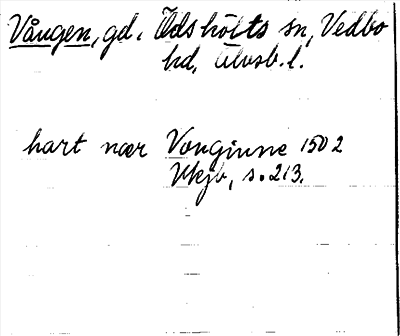 Vången, gd. Ödsköllts sn, Vedbo
hd, Älvsb. l.
hart nær Vonginne 1502
Vkjb, s. 213.